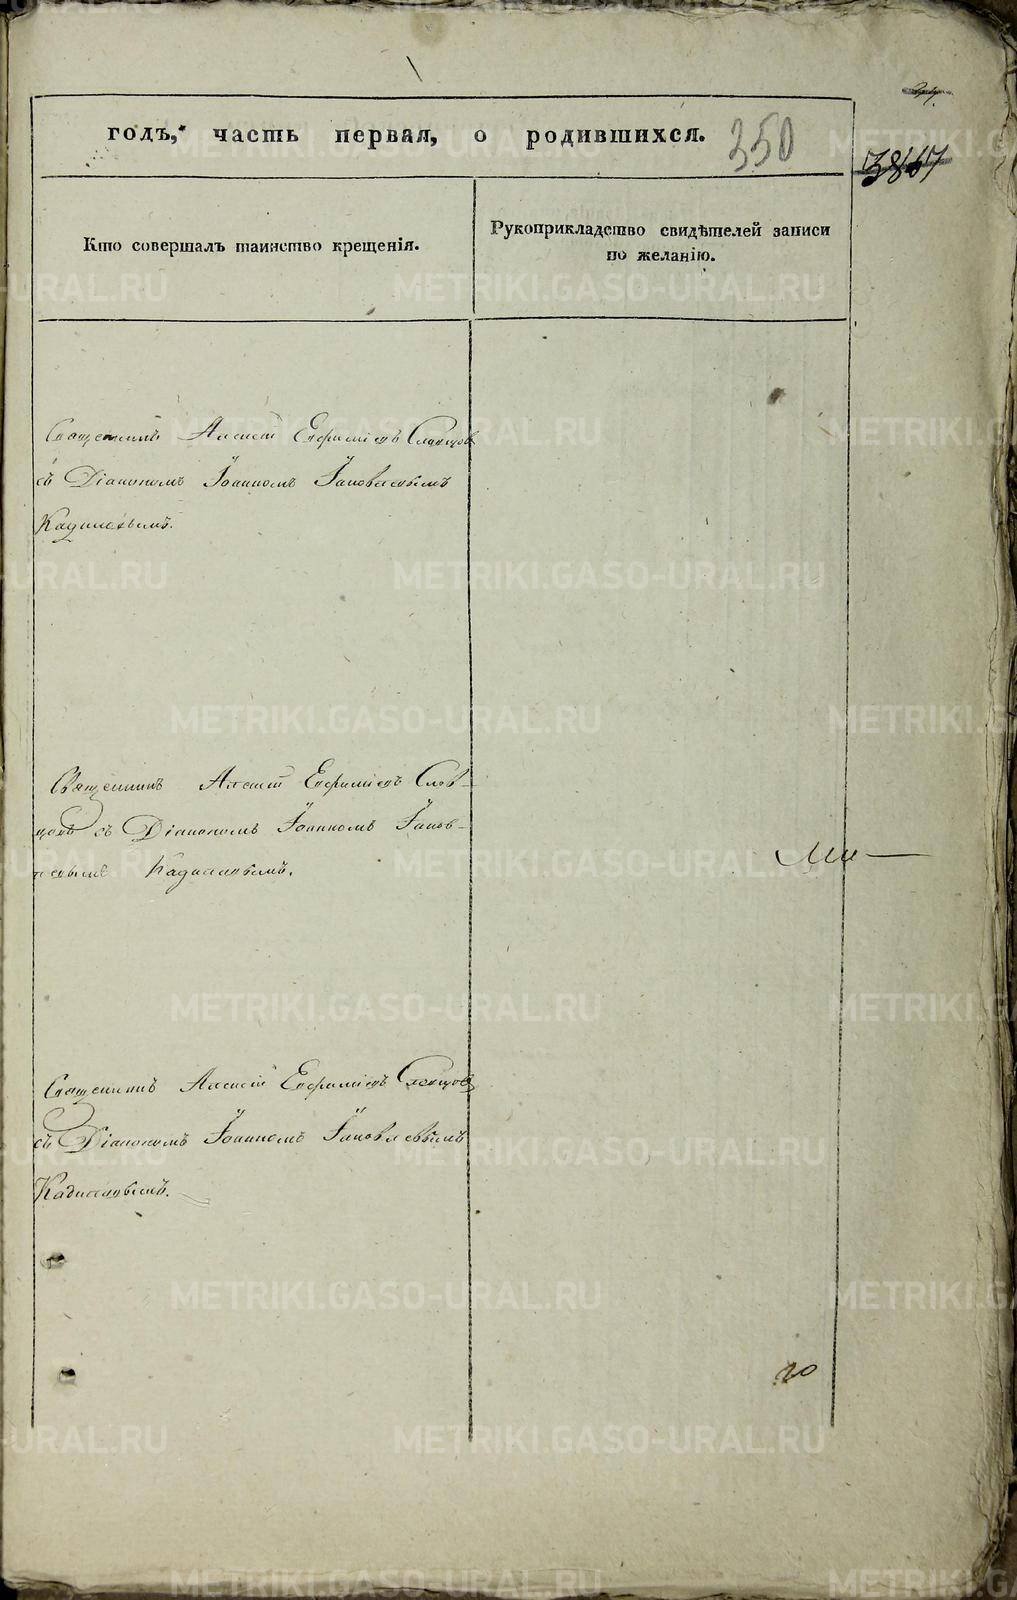 годъ, часть первая, о родившихся.
350
3867
Кто совершалъ таинство крещенія.
Рукоприкладство свидѣтелей записи
по желанію.
Священникъ Алексій Евфиміевъ Словцовъ
съ Діакономъ Іоанномъ Іаковлевымъ
Кадиловымъ.
Священникъ Алексій Евфиміевъ Слов-
цовъ съ Діакономъ Іоанномъ Іаков-
левымъ Кадиловымъ.
Священникъ Алексій Евфиміевъ Словцовъ
съ Діакономъ Іоанномъ Іаковлевымъ
Кадиловымъ.
METRIKI.GASO-URAL.RU